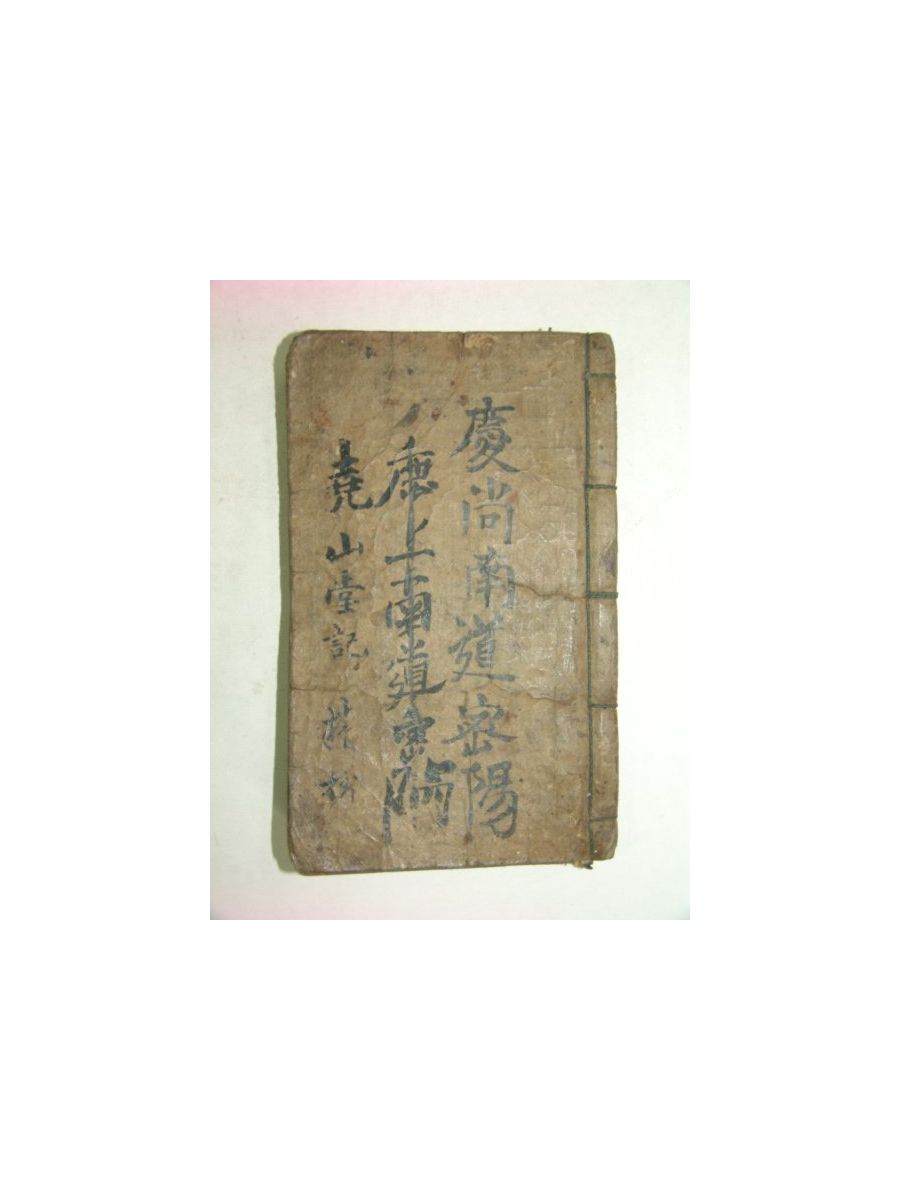 慶尚南道密陽
慶上南道密陽
堯山臺記